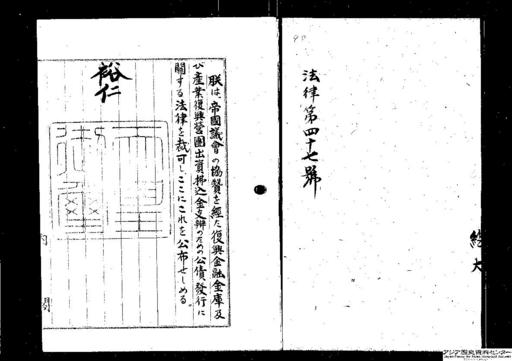 法律第四十七號
朕は、帝國議會の協賛を經た復興金融金庫及
び産業復興營團出資拂込金支辨のための公債發行に
關する法律を裁可し、ここにこれを公布せしめる。
裕仁
内
閣
アジア歴史資料センター